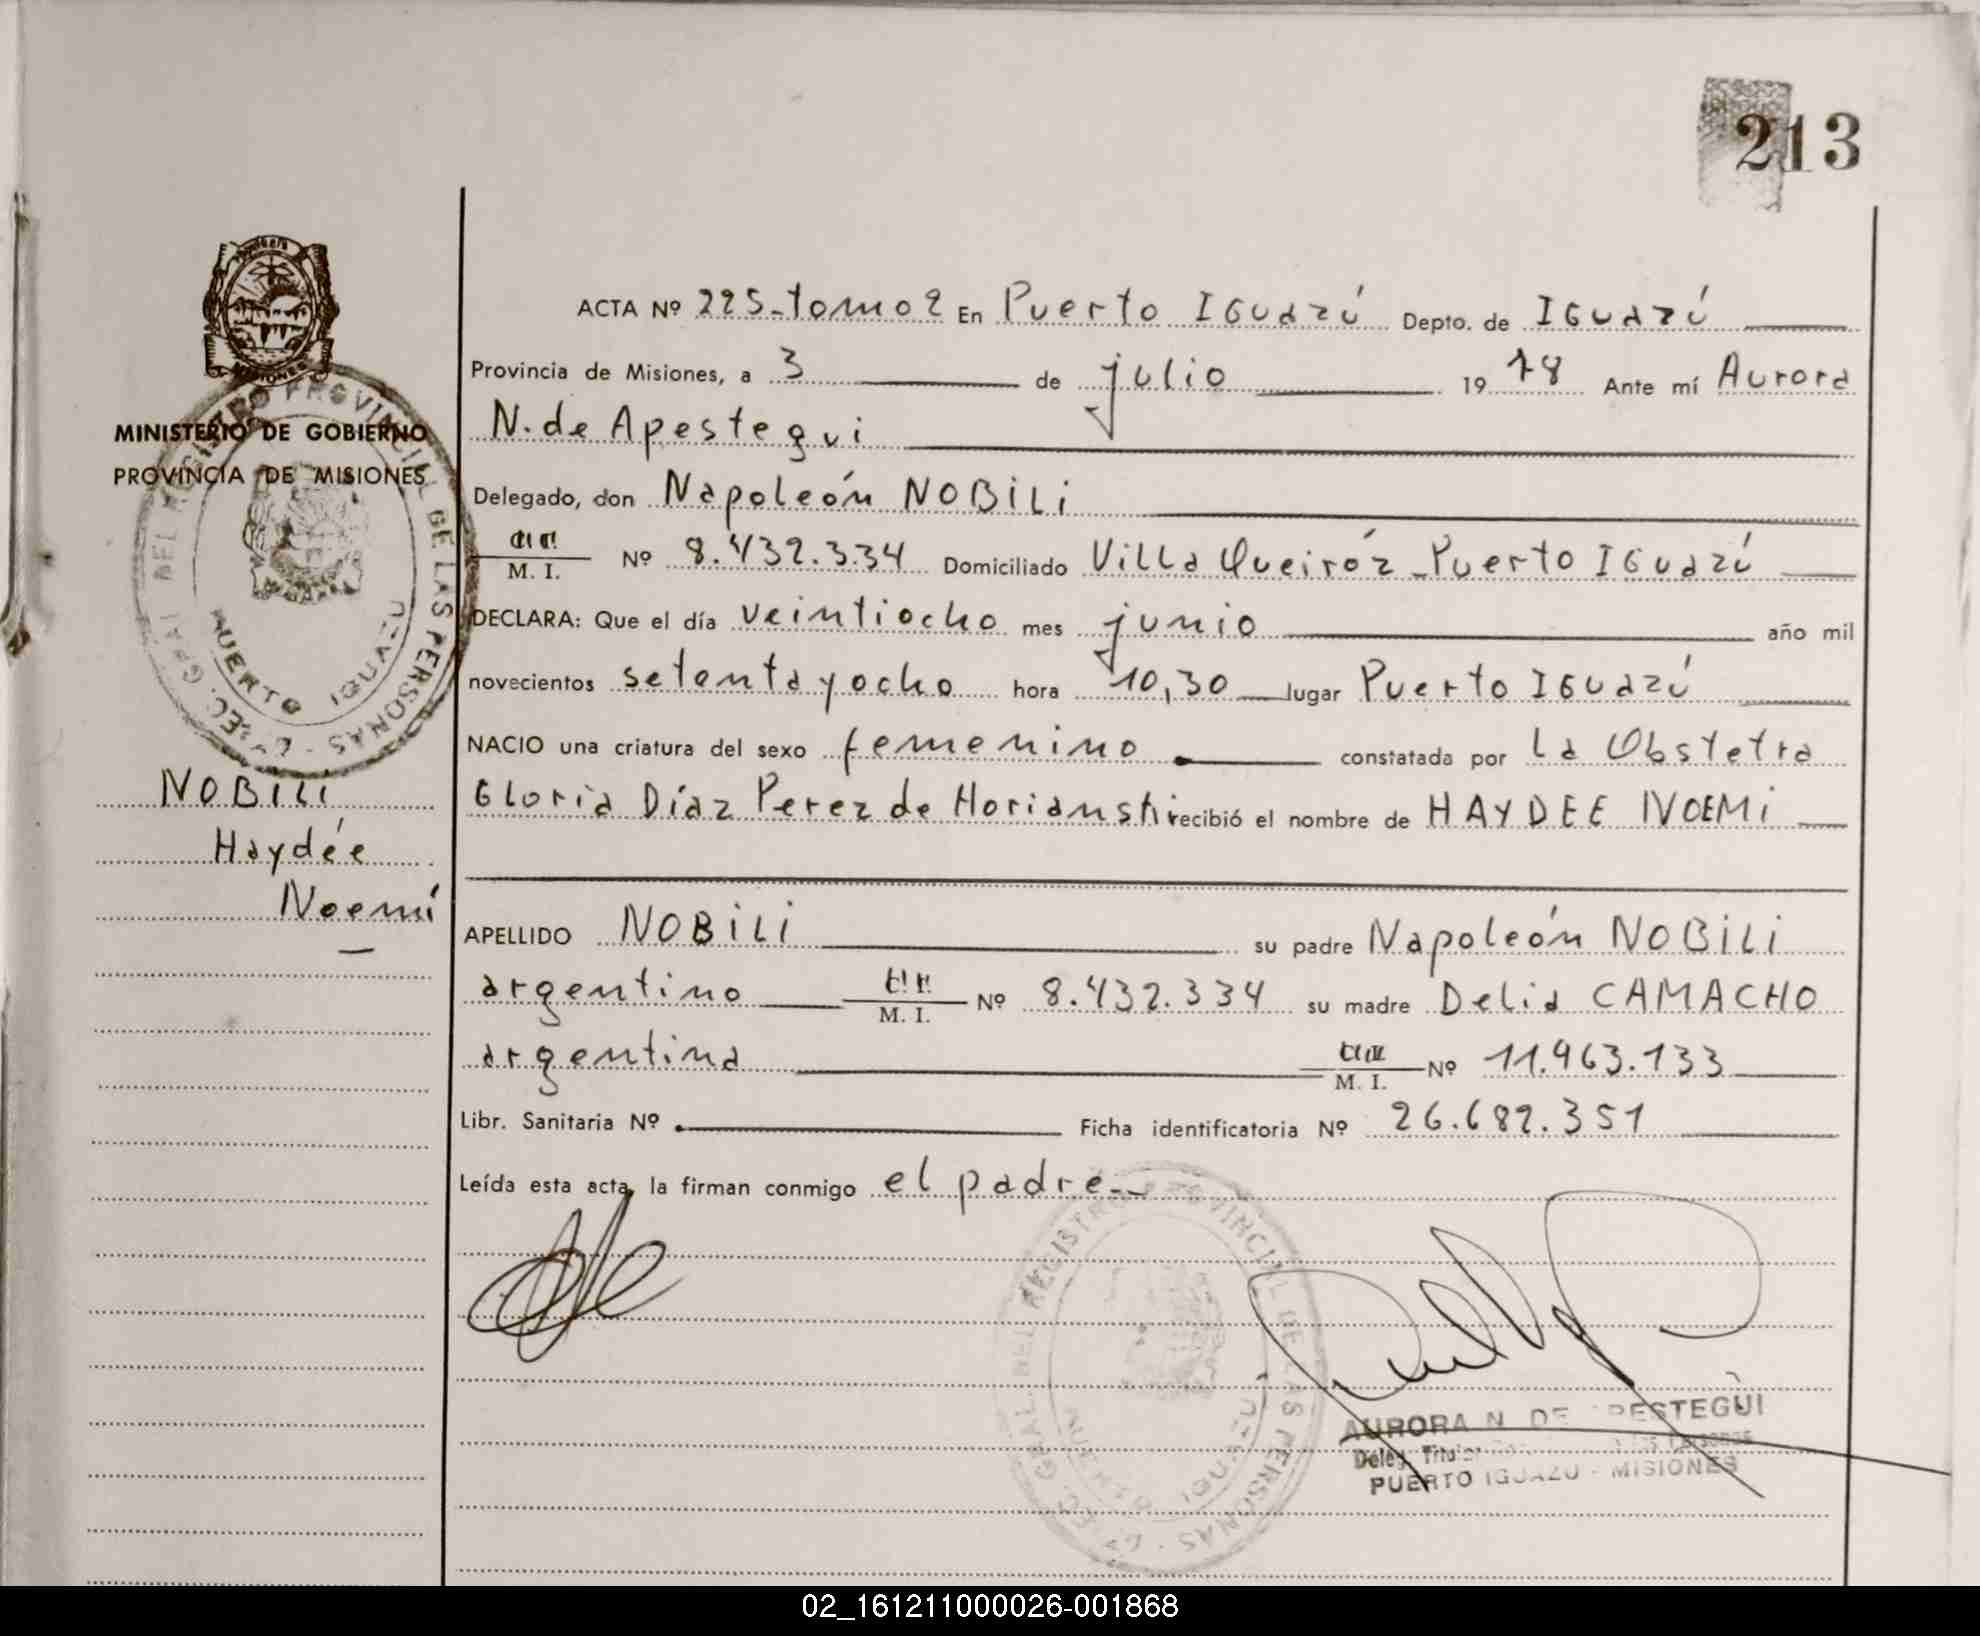 213
ACTA Nº 225-tomo 2 En Puerto Iguazú Depto. de Iguazú
Provincia de Misiones, a 3 de julio 19 78 Ante mí Aurora
N. de Apestegui
MINISTERIO DE GOBIERNO
PROVINCIA DE MISIONES
Delegado, don Napoleón NOBILI
M. I. Nº 8.432.334 Domiciliado Villa Queiróz - Puerto Iguazú
DECLARA: Que el día veintiocho mes junio año mil
novecientos setenta y ocho hora 10,30 lugar Puerto Iguazú
NACIO una criatura del sexo femenino constatada por la Obstetra
Gloria Díaz Perez de recibió el nombre de HAYDEE NOEMI
NOBILI
Haydée
Noemí
APELLIDO NOBILI su padre Napoleón NOBILI
argentino M. I. Nº 8.432.334 su madre Delia CAMACHO
argentina M. I. Nº 11.963.133
Libr. Sanitaria Nº Ficha identificatoria Nº 26.682.351
Leída esta acta, la firman conmigo el padre.--
AURORA N. DE APESTEGUI
PUERTO IGUAZU - MISIONES
02_161211000026-001868